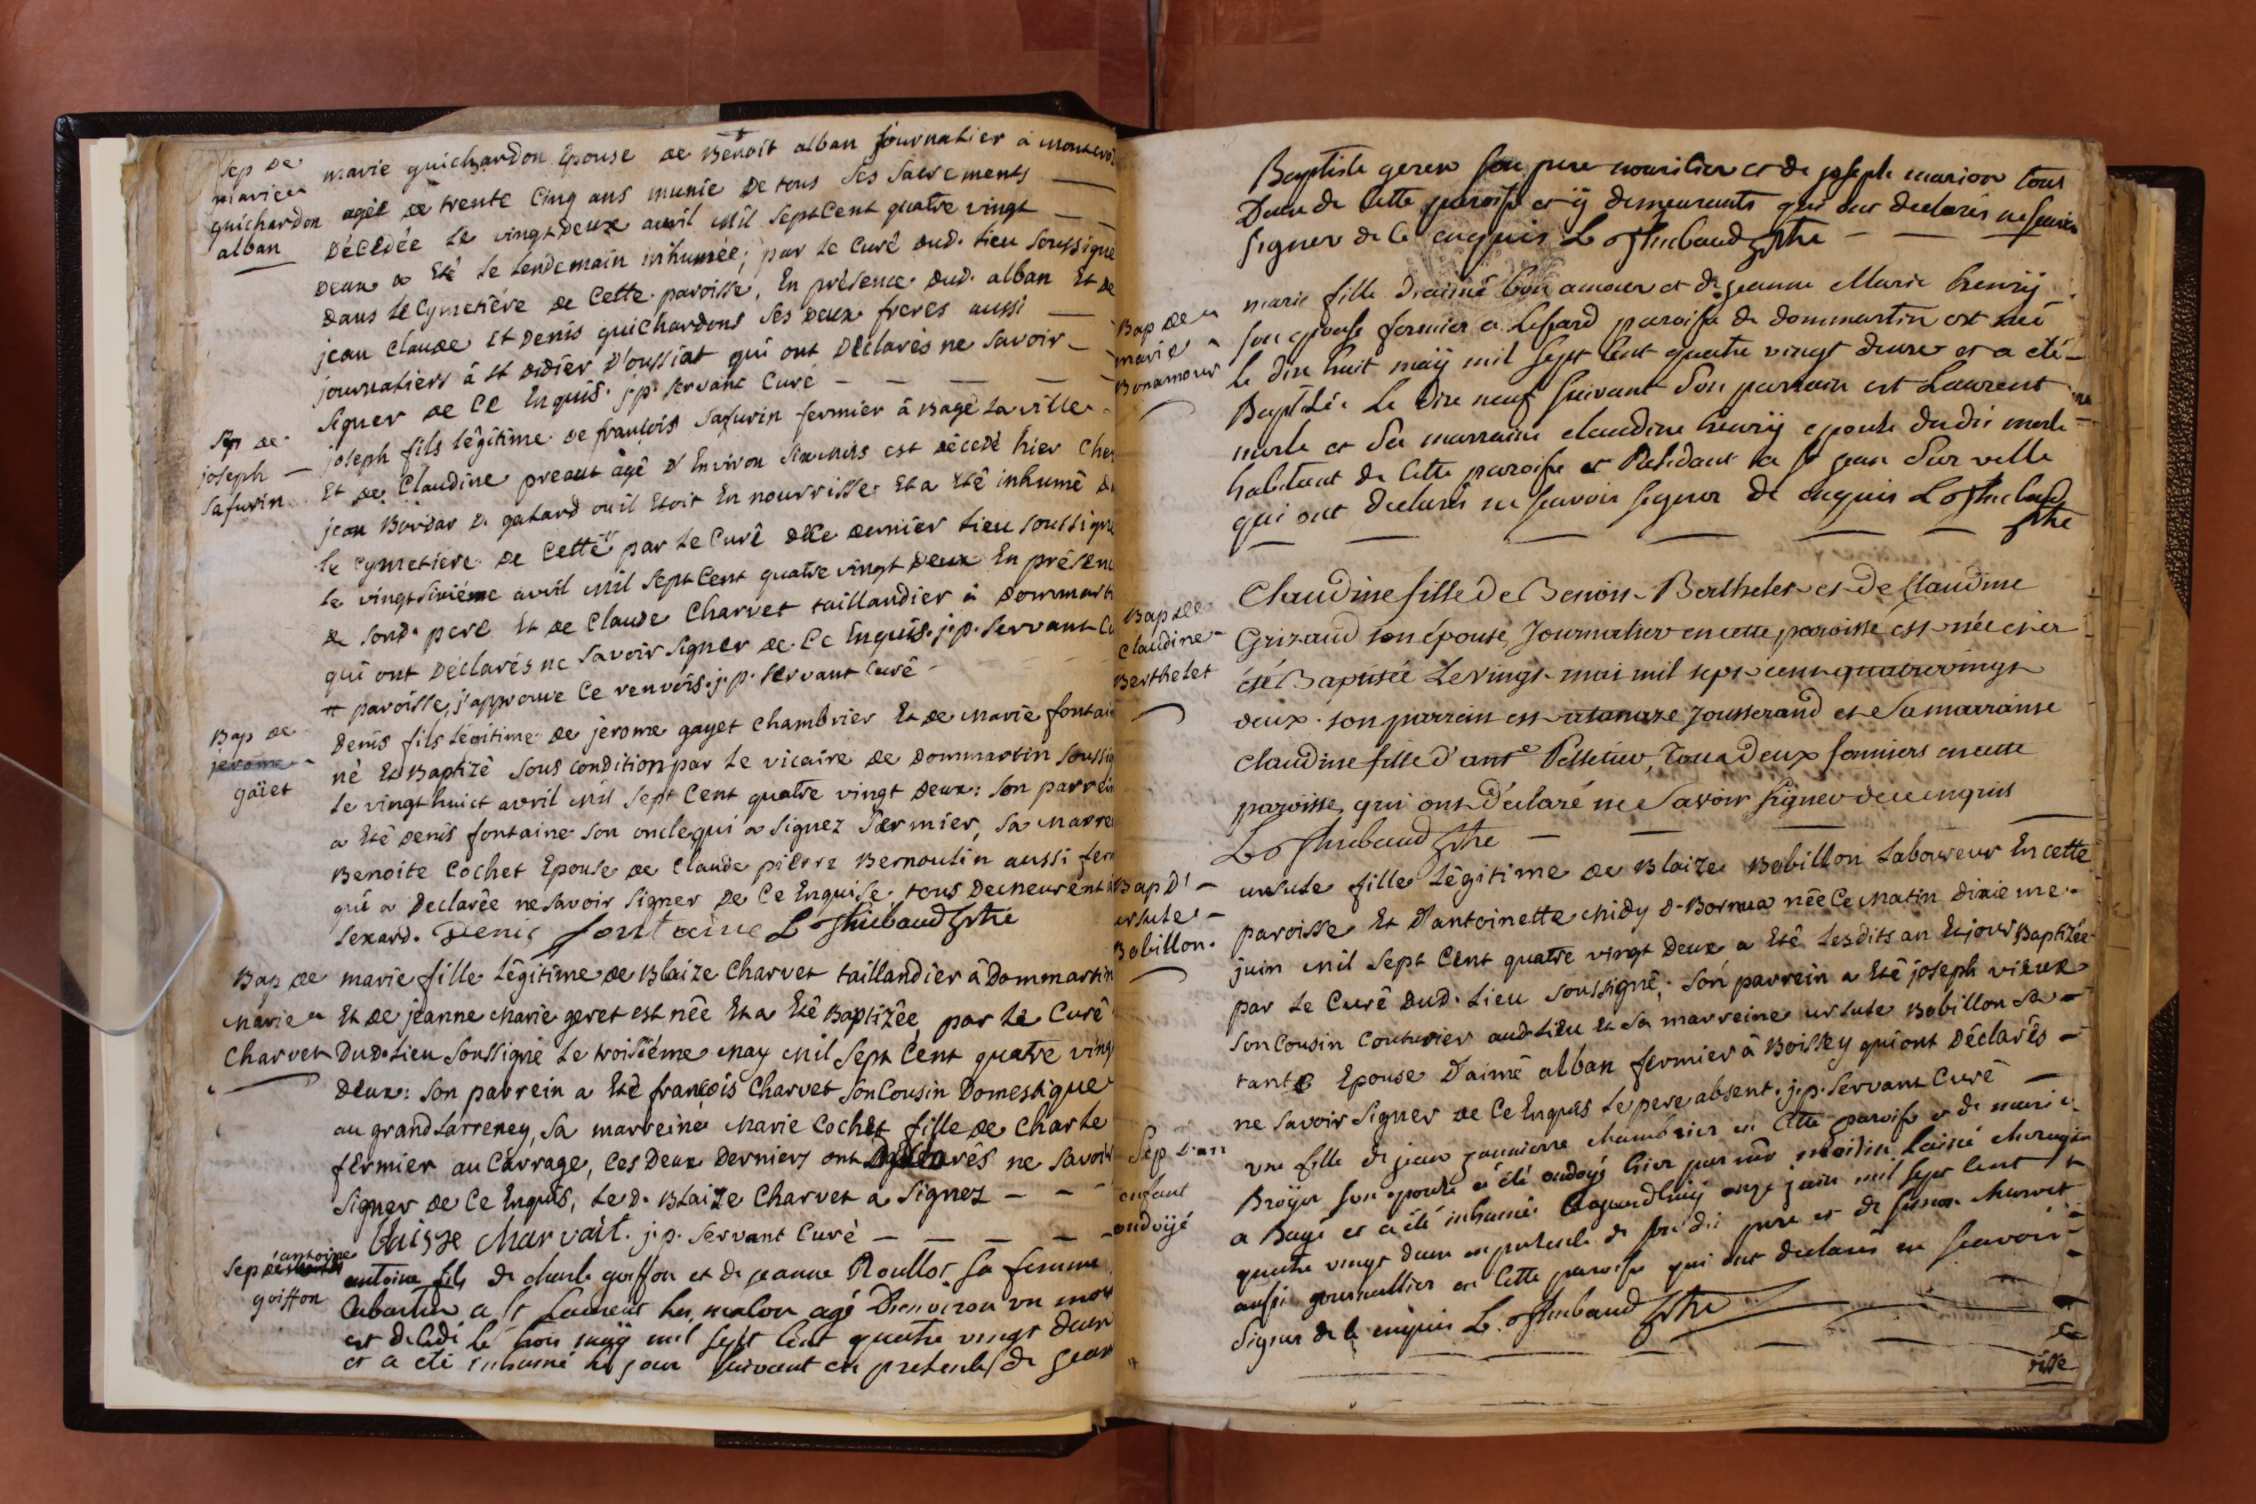 Sep de
marie
guichardon
alban
marie guichardon Epouse de Benoit alban journalier à
agée de trente Cinq ans munie De tous Ses Sacrements
Décédée Le vingtdeux avril Mil SeptCent quatre vingt
Deux a Eté le Lendemain inhumée; par Le Curé dud. Lieu Soussigné
dans LeCymetiére de Cette paroisse, En présence dud. alban Et de
jean Claude Et Denis guichardons Ses Deux freres aussi
journaliers à St Didier D'oussiat qui ont Déclarés ne Savoir
Signer de Ce Enquis. j.p. Servant Curé
Sep de
joseph
Safurin
joseph fils légitime de françois Safurin fermier à Bagé La ville
Et de Claudine preaut âgé D'Environ Six mois est décedé hier Ches
jean Bordar D. galard ou il Etoit En nourrisse Et a Eté inhumé D
le Cymetiere de Cette par Le Curé de Ce dernier Lieu Soussigné
le vingtSixiéme avril Mil SeptCent quatre vingt Deux En présenc
de Sond. pere Et de Claude Charvet taillandier à Dommart
qui ont Déclarés ne Savoir Signer de Ce Enquis. j.p. Servant Cu
paroisse, j'approuve Ce renvois. j.p. Servant Curé
Bap de
jerome
gaiet
Denis fils Légitime de jerome gayet Chambrier Et de Marie fontai
né Et Baptizé Sous Condition par Le vicaire de Dommartin Soussig
Le vingthuict avril Mil Sept Cent quatre vingt Deux: Son parrein
a Eté Denis fontaine Son oncle qui a Signez fermier, Sa Marre
Benoite Cochet Epouse de Claude pierre Bernoulin aussi fer
qui a Declarée ne Savoir Signer De Ce Enquise, tous Demeurent à
Lexard. Denis fontaine L. J Thiebaud ptre
Bap de
Marie
Charvet
marie fille Légitime de Blaize Charvet taillandier à Dommartin
Et de jeanne Marie geret est née Et a Eté Baptizée par Le Curé
Dud. Lieu Soussigné Le troisiéme May Mil Sept Cent quatre ving
Deux: Son parrein a Eté françois Charvet Son Cousin Domestique
au grand Larreney, Sa marreine Marie Cochet fille de Charle
fermier au Carrage, Ces Deux Derniers ont Déclarés ne Savoir
Signer de Ce Enquis, Led. Blaize Charvet a Signez
blaisze Charvait. j.p. Servant Curé
Sep d'antoine
goiffon
antoine fils de charle goiffon et de jeanne Roullot Sa femme
a St Laurent les macon agé Denviron un mois
est decedé le trois maÿ mil sept cent quatre vingt deux
et a eté inhumé le jour suivant en presence de jean
Baptiste geren son pere nouricier et de joseph marion tous
Deux de Cette paroisse et ÿ demeurants qui ont declarés ne scavoir
signer de ce enquis L. J Thiebaud ptre
Bap de
marie
Bonamour
marie fille d'aimé bon amour et de jeanne Marie henrÿ
son epouse fermier a Lesard paroisse de dommartin est née
le dix huit maÿ mil sept cent quatre vingt deux et a eté
Baptisée Le dix neuf suivant Son parrain est Laurent
merle et Sa marraine claudine henrÿ epouse dudit merle
habitant de Cette paroisse et Residant a St jean Sur velle
qui ont declarés ne scavoir signer de enquis L. J Thiebaud
ptre
Bap de
Claudine
Berthelet
Claudine fille de Benoit Berthelet et de Claudine
Grizaud son épouse, Journalier en cette paroisse est née et a
été Baptisée Le vingt mai mil sept cent quatrevingt
deux. son parrein est atanaze Jousserand et Sa marraine
claudine fille d'ante Pelletier, Tous Deux fermiers en cette
paroisse, qui ont Déclaré ne Savoir signer de ce enquis
L. J Thiebaud ptre
Bap D'
ursule
Bobillon.
ursule fille Légitime de Blaize Bobillon Laboureur En cette
paroisse Et D'antoinette Midy D. Bornua née Ce Matin Dixieme
juin Mil Sept Cent quatre vingt Deux a Eté Lesdits an Et jour Baptizée
par Le Curé Dud. Lieu Soussigné; Son parrein a Eté joseph vieux
Son Cousin Couturier aud. Lieu Et Sa marreine ursule Bobillon Sa
tante Epouse D'aimé alban fermier à Boissey qui ont Déclarés
ne Savoir Signer de Ce Enquis Le pere absent. j.p. Servant Curé
Sep D'un
enfant
ondoÿé
une fille de jean chambrier en Cette paroisse et de marie
Broÿer son epouse a été ondoÿé hier par laisné chirugien
a Bagé et a été inhumé aujourdhuÿ onze juin mil sept cent
quatre vingt deux en presence de son dit pere et de simon charvet
aussi journallier en Cette paroisse qui ont declarés ne scavoir
signer de ce enquis L. J Thiebaud ptre